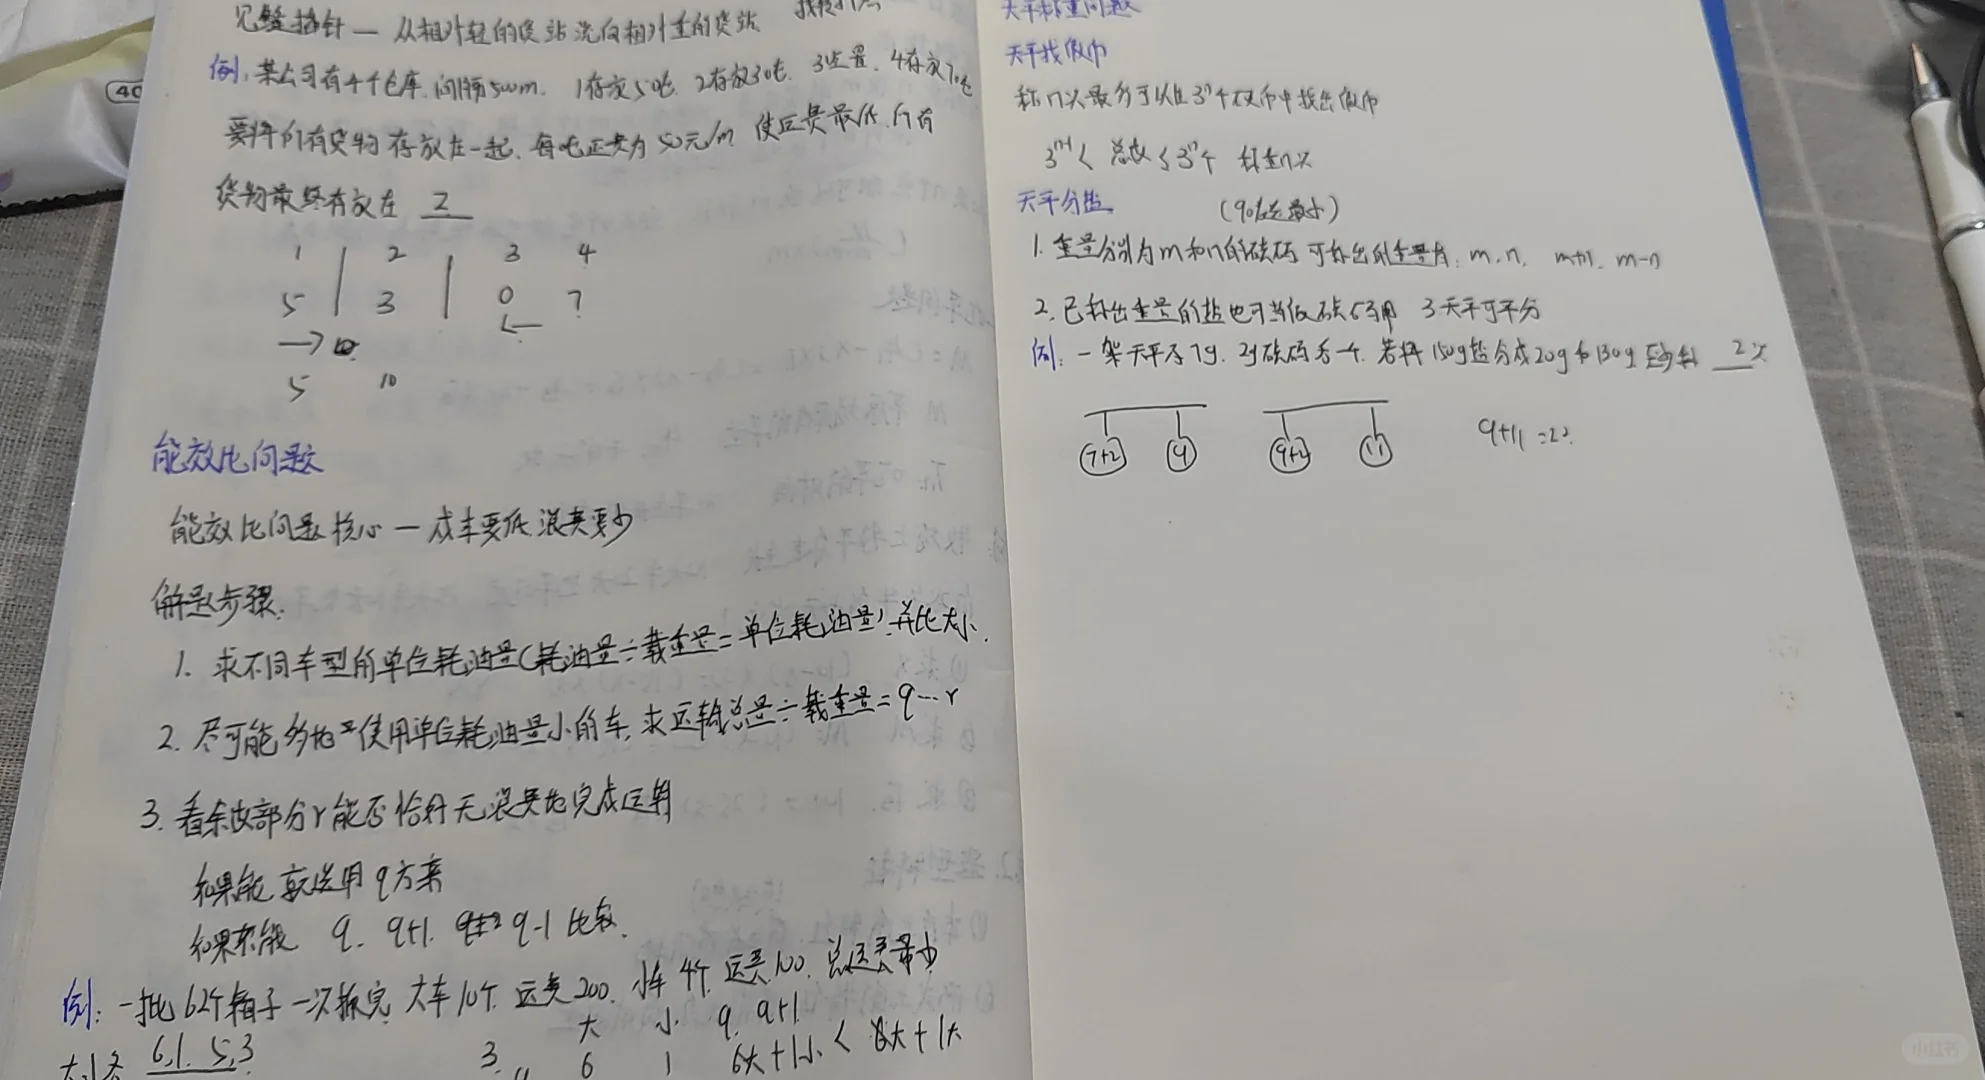 见整指针一从相对轻的货站流向相对重的货站
例:某公司有4个仓库.间隔500m. 1存放5吨. 2存放30吨. 3空置. 4存放70吨
要将所有货物存放在一起.每吨运费为50元/m 使运费最低.所有
货物最终存放在 2
1 2 3 4
5 3 0 7
5 10
能效比问题
能效比问题核心一成本要低.浪费要少
解题步骤.
1. 求不同车型的单位耗油量(耗油量÷载重量=单位耗油量)并比大小.
2. 尽可能多地使用单位耗油量小的车.求运输总量÷载重量=q…r
3. 看余数部分r能否恰好无浪费地完成运输
如果能就选用q方案
如果不能 q. q+1. q-1比较.
例:一批62个箱子一次搬完.大车10个.运费200.小车4个.运费100.总运费最少
大 小 q. q+1.
6,1. 5,3
3. 6 1 6大+1小<6大+1大
天平称重问题
天平找假币
称n次最多可以从3ⁿ个硬币中找出假币
3ⁿ⁻¹< 总数≤3ⁿ个 称重n次
天平分盐
1. 重量分别为m和n的砝码可称出的重量有: m. n. m+n. m-n
2. 已称出重量的盐也可当做砝码 3 天平可平分
例: 一架天平有7g. 2g砝码各一个. 若将150g盐分成20g和130g至少称 2次
7+2 9 9+2 11 9+11=20.
小红书